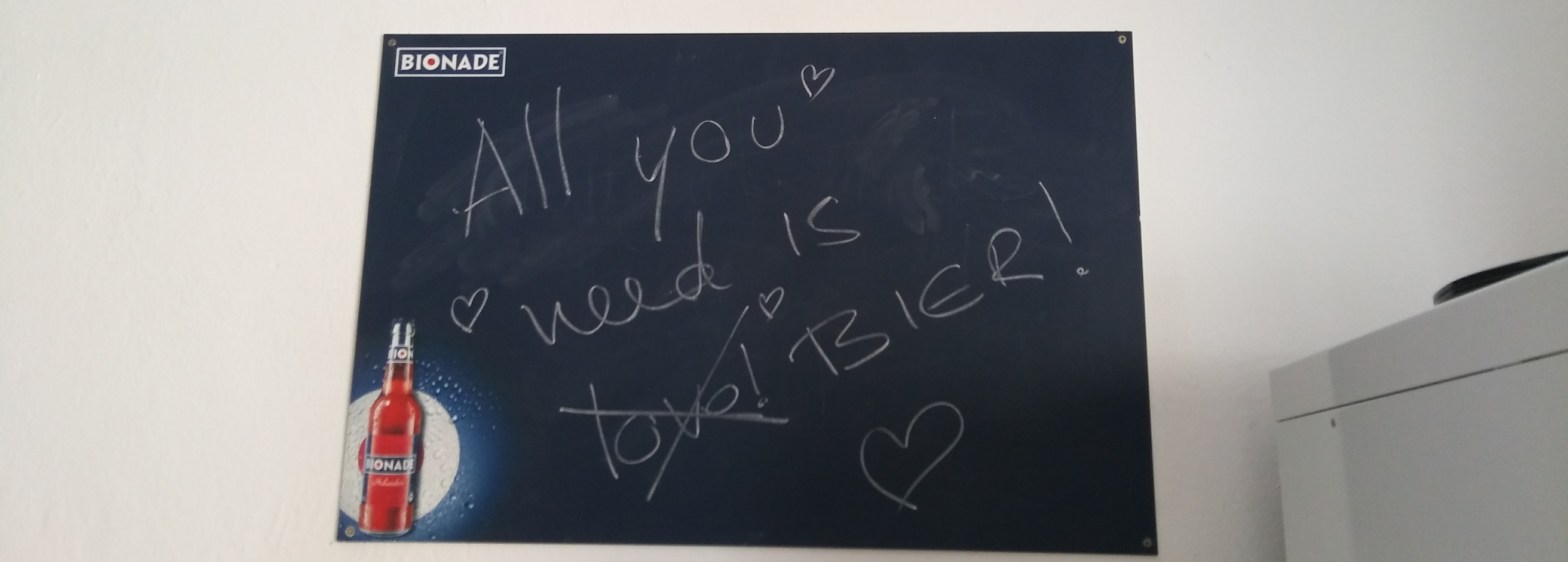 BIONADE
All you
need is
BIER!
BION
BIONADE